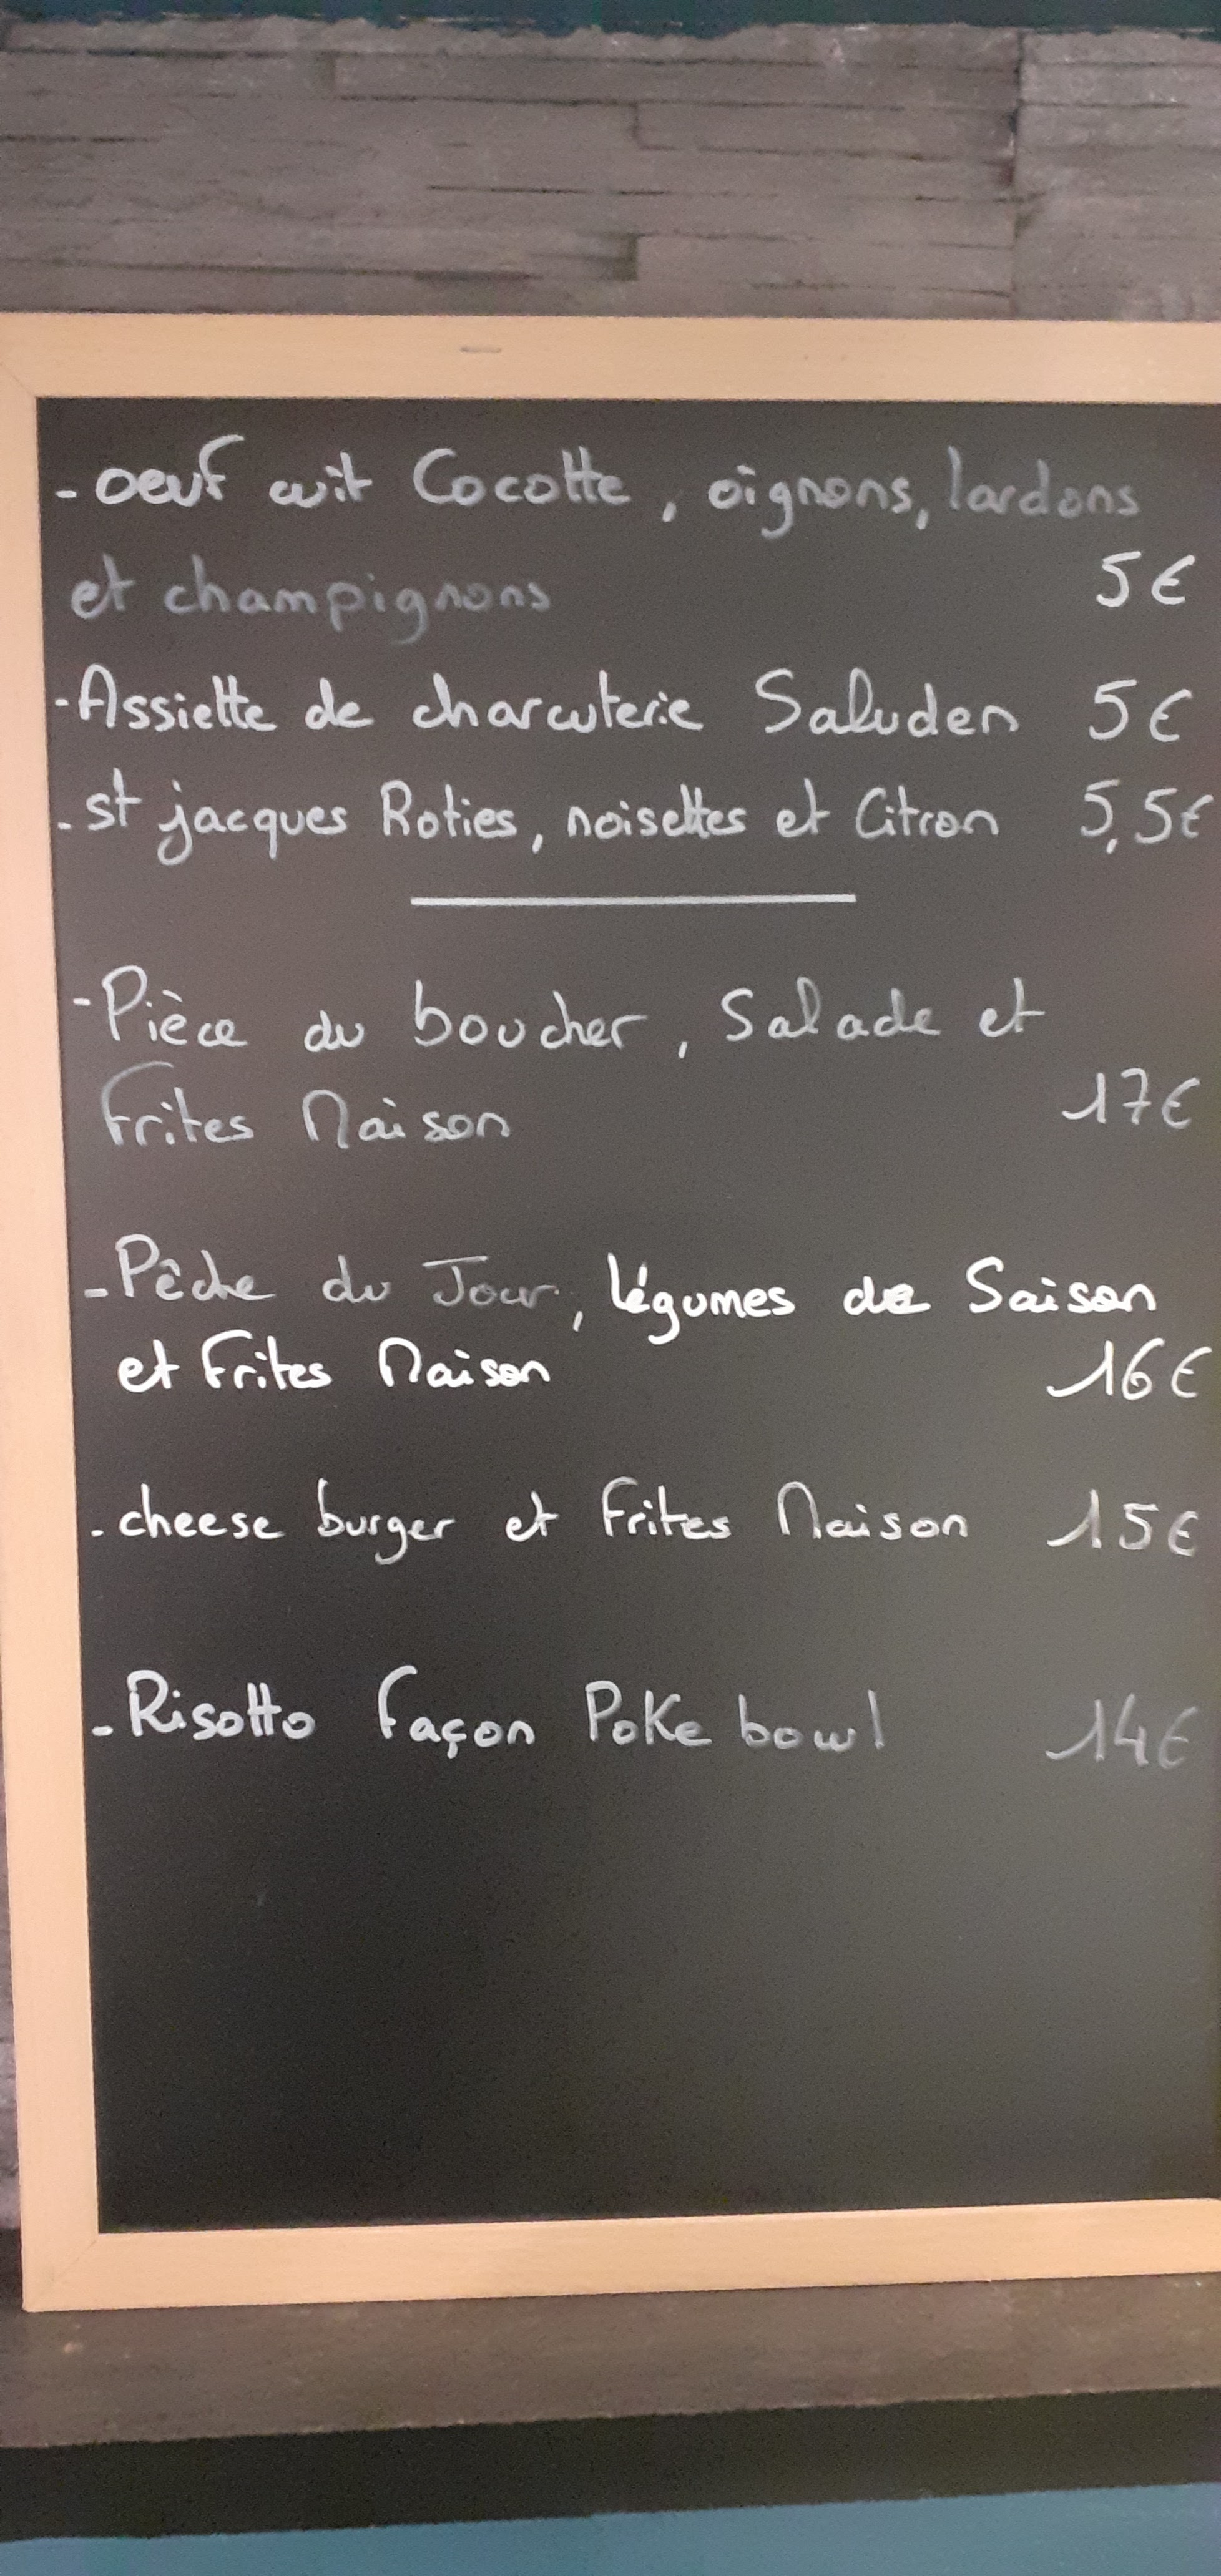 - oeuf cuit Cocotte, oignons, lardons
et champignons 5€
- Assiette de charcuterie Saluden 5€
- st jacques Roties, noisettes et Citron 5,5€
- Pièce du boucher, Salade et
Frites Maison 17€
- Pêche du Jour, légumes de Saison
et Frites Maison 16€
- cheese burger et Frites Maison 15€
- Risotto Façon Poke bowl 14€